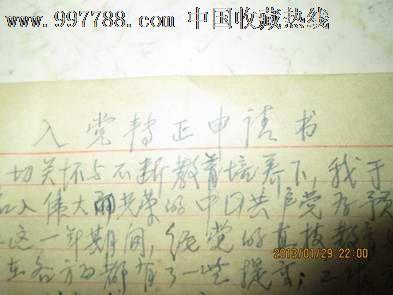 www.997788.com 中国收藏热线
入党转正申请书
切关怀与不断教育培养下，我于
加入伟大而光荣的中国共产党为预
这一年期间，经党的直接教
在各方面都有了一些提高
2013/01/29 22:00